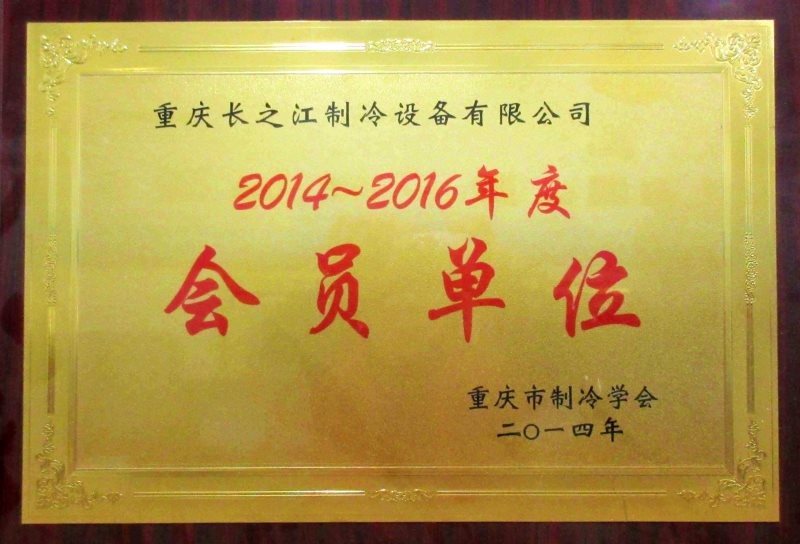 重庆长之江制冷设备有限公司
2014~2016年度
会员单位
重庆市制冷学会
二〇一四年